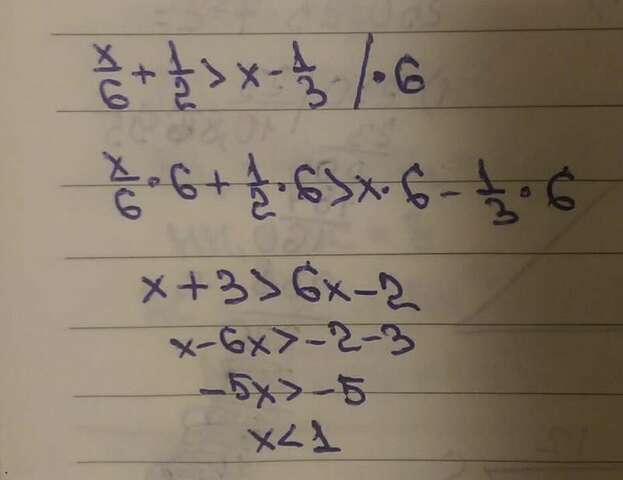 x/6 + 1/2 > x - 1/3 / · 6
x/6 · 6 + 1/2 · 6 > x · 6 - 1/3 · 6
x + 3 > 6x - 2
x - 6x > -2 - 3
-5x > -5
x < 1